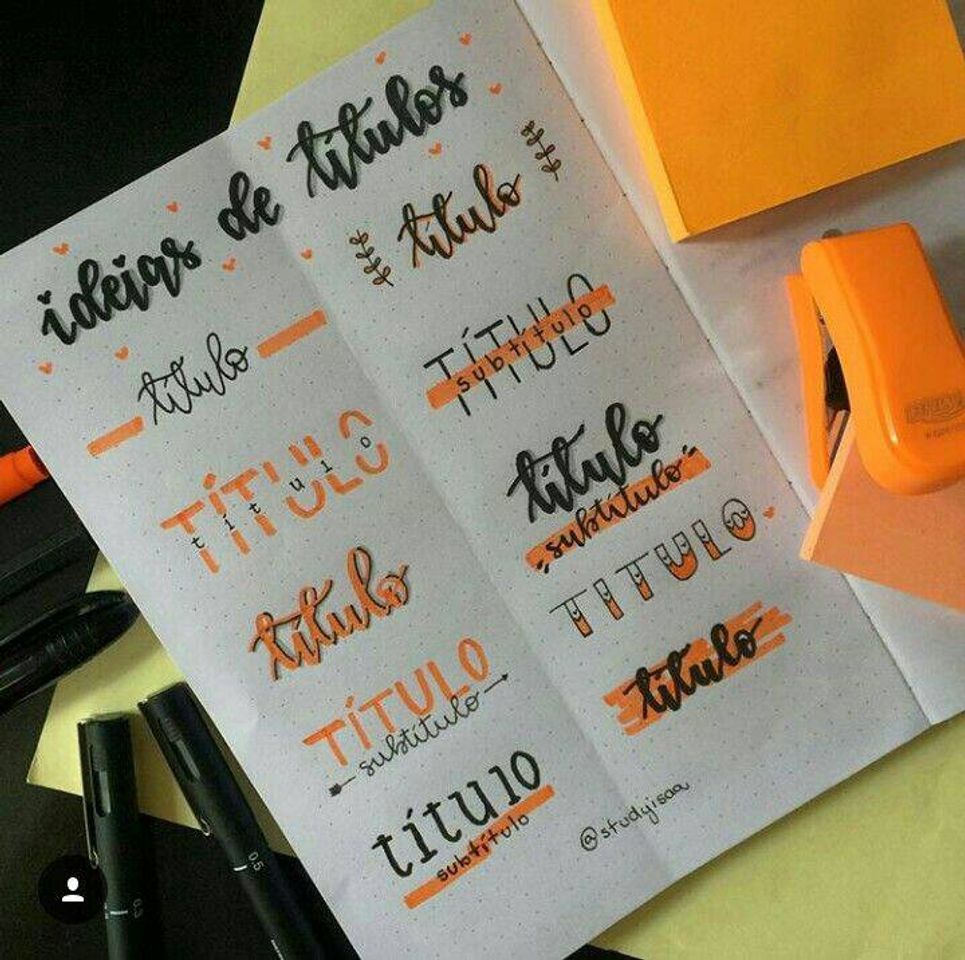 ideias de títulos
título
TÍTULO
título
título
TÍTULO
subtítulo
título
subtítulo
título
TÍTULO
subtítulo
título
subtítulo
TITULO
título
@studyisaa
0.5